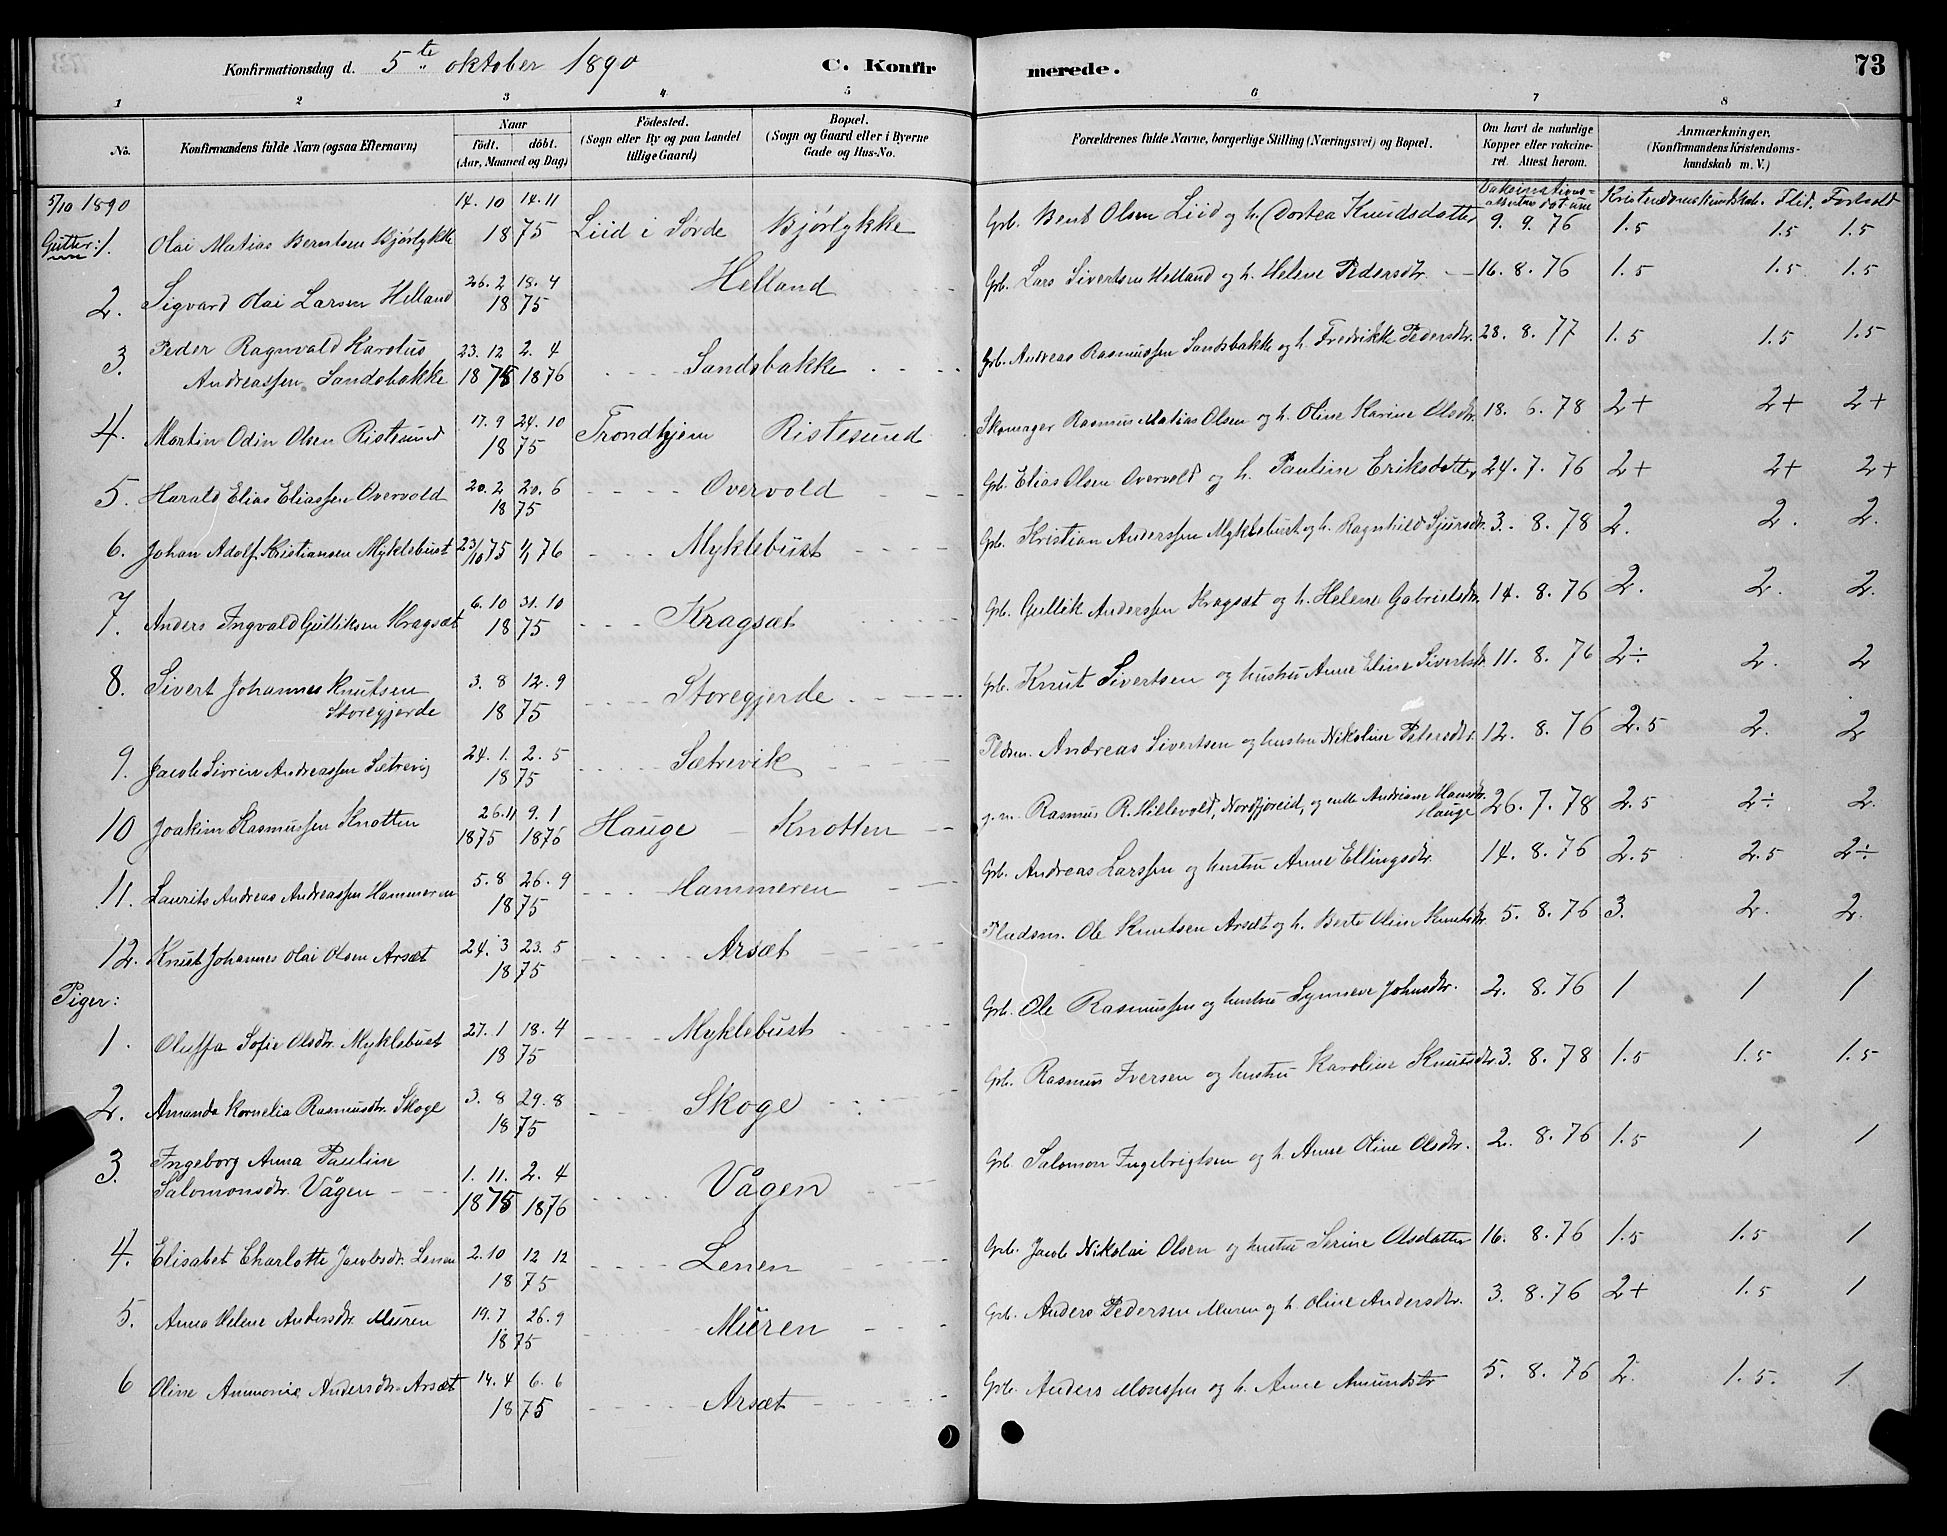 Konfirmationsdag d. 5te oktober 1890 C. Konfirmerede. 73
1 2 3 4 5 6 7 8
No. Konfirmandens fulde Navn (ogsaa Efternavn) Naar födt. döbt. (Aar, Maaned og Dag) Födested. (Sogn eller By og paa Landet tillige Gaard) Bopæl. (Sogn og Gaard eller i Byerne Gade og Hus-No. Forældrenes fulde Navne, borgerlige Stilling (Næringsvei) og Bopæl. Om havt de naturlige Kopper eller vakcineret. Attest herom. Anmærkninger. (Konfirmandens Kristendomskundskab m. V.)
5/10 1890 Vaksinations= attestens datum Kristendomskundskab. Flid. Forhold
Gutter: 1. Olai Matias Berntsen Bjørlykke 14. 10 14. 11 1875 Liid i Sørde Bjørlykke Grb. Bent Olsen Liid og h. Dortea Knudsdatter 9. 9. 76 1.5 1.5 1.5
2. Sigvard Olai Larsen Helland 26. 2 18. 4 1875 Helland Grb. Lars Sivertsen Helland og h. Helene Pedersdtr. 16. 8. 76 1.5 1.5 1.5
3. Peder Ragnvald Karolus Andreassen Sandsbakke 23. 12 1875 2. 4 1876 Sandsbakke Grb. Andreas Rasmussen Sandsbakke og h. Fredrikke Pedersdtr. 28. 8. 77 1.5 1.5 1.5
4. Martin Odin Olsen Ristesund 17. 9 24. 10 1875 Trondhjem Ristesund Skomager Rasmus Matias Olsen og h. Oline Karine Olsdtr. 18. 6. 78 2+ 2+ 2+
5. Harald Elias Eliassen Overvold 20. 2 20. 6 1875 Overvold Grb. Elias Olsen Overvold og h. Pauline Eriksdatter 24. 7. 76 2+ 2+ 2+
6. Johan Adolf Kristiansen Myklebust 23/10 75 1/1 76 Myklebust Grb. Kristian Anderssen Myklebust og h. Ragnhild Sjursdtr. 3. 8. 78 2. 2. 2.
7. Anders Ingvald Gulliksen Kragsæt 6. 10 31. 10 1875 Kragsæt Grb. Gullik Anderssen Kragsæt og h. Helene Gabrielsdtr. 14. 8. 76 2. 2. 2.
8. Sivert Johannes Knutsen Storegjerde 3. 8 12. 9 1875 Storegjerde Grb. Knut Sivertsen og hustru Anne Eline Sivertsdtr. 11. 8. 76 2÷ 2. 2
9. Jacob Sivrin Andreassen Sætrevig 24. 1. 2. 5 1875 Sætrevik Pldsm. Andreas Sivertsen og hustru Nikoline Petersdtr. 12. 8. 76 2.5 2. 2
10 Joakim Rasmussen Knotten 26.11 1875 9. 1 1876 Hauge Knotten g.m. Rasmus R. Hillevold, Nordfjoreid, og enke Andriane Hansdtr. Hauge 26. 7. 78 2.5 2÷ 2.
11. Laurits Andreas Andreassen Hammeren 5. 8 26. 9 1875 Hammeren Grb. Andreas Larssen og hustru Anne Ellingsdtr. 14. 8. 76 2.5 2.5 2÷
12. Knut Johannes Olai Olsen Arsæt 24. 3 23. 5 1875 Arsæt Pladsm. Ole Knutsen Arsæt og h. Berte Oline Knutsdtr. 5. 8. 76 3. 2. 2.
Piger:
1. Oluffa Sofie Olsdtr. Myklebust 27. 1 18. 4 1875 Myklebust Grb. Ole Rasmussen og hustru Synneve Johnsdtr. 2. 8. 76 1 1 1
2. Amanda Kornelia Rasmusdtr. Skoge 3. 8 29. 8 1875 Skoge Grb. Rasmus Iversen og hustru Karoline Knutsdtr. 3. 8. 78 1.5 1.5 1.5
3. Ingeborg Anna Pauline Salomonsdtr. Vågen 1. 11. 1875 2. 4 1876 Vågen Grb. Salomon Ingebrigtsen og h. Anne Oline Olsdtr. 2. 8. 76 1.5 1 1
4. Elisabet Charlotte Jacobsdr. Lenen 2. 10 12 12 1875 Lenen Grb. Jacob Nikolai Olsen og hustru Serine Olsdatter 16. 8. 76 1.5 1.5 1
5. Anna Helene Andersdtr. Muren 19. 7 26. 9 1875 Muren Grb. Anders Pedersen Muren og h. Oline Andersdtr. 3. 8. 76 2+ 1.5 1
6 Oline Ammonie Andersdtr. Arsæt 14. 4 6. 6 1875 Arsæt Grb. Anders Monssen og h. Anne Amundsdtr 5. 8. 76 2. 1.5. 1